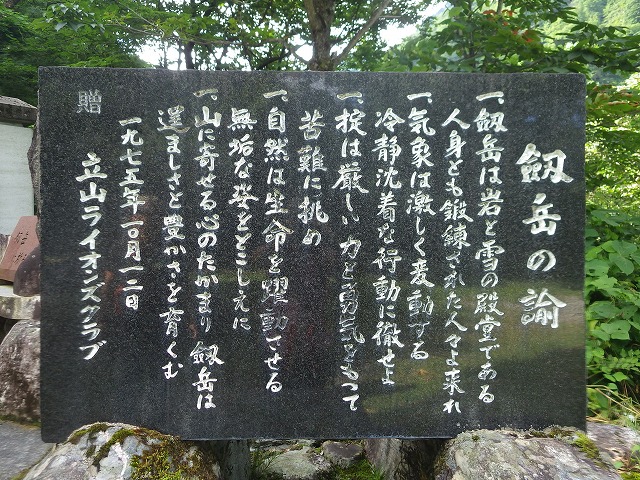 劔岳の諭
一、劔岳は岩と雪の殿堂である
人身ども鍛錬された人々よ来れ
一、気象は激しく変動する
冷静沈着な行動に徹せよ
一、掟は厳しい力と勇気をもって
苦難に挑め
一、自然は生命を躍動させる
無垢な姿をとこしえに
一、山に寄せる心のたかまり劔岳は
逞ましさと豊かさを育くむ
一九七五年一〇月一二日
贈 立山ライオンズクラブ